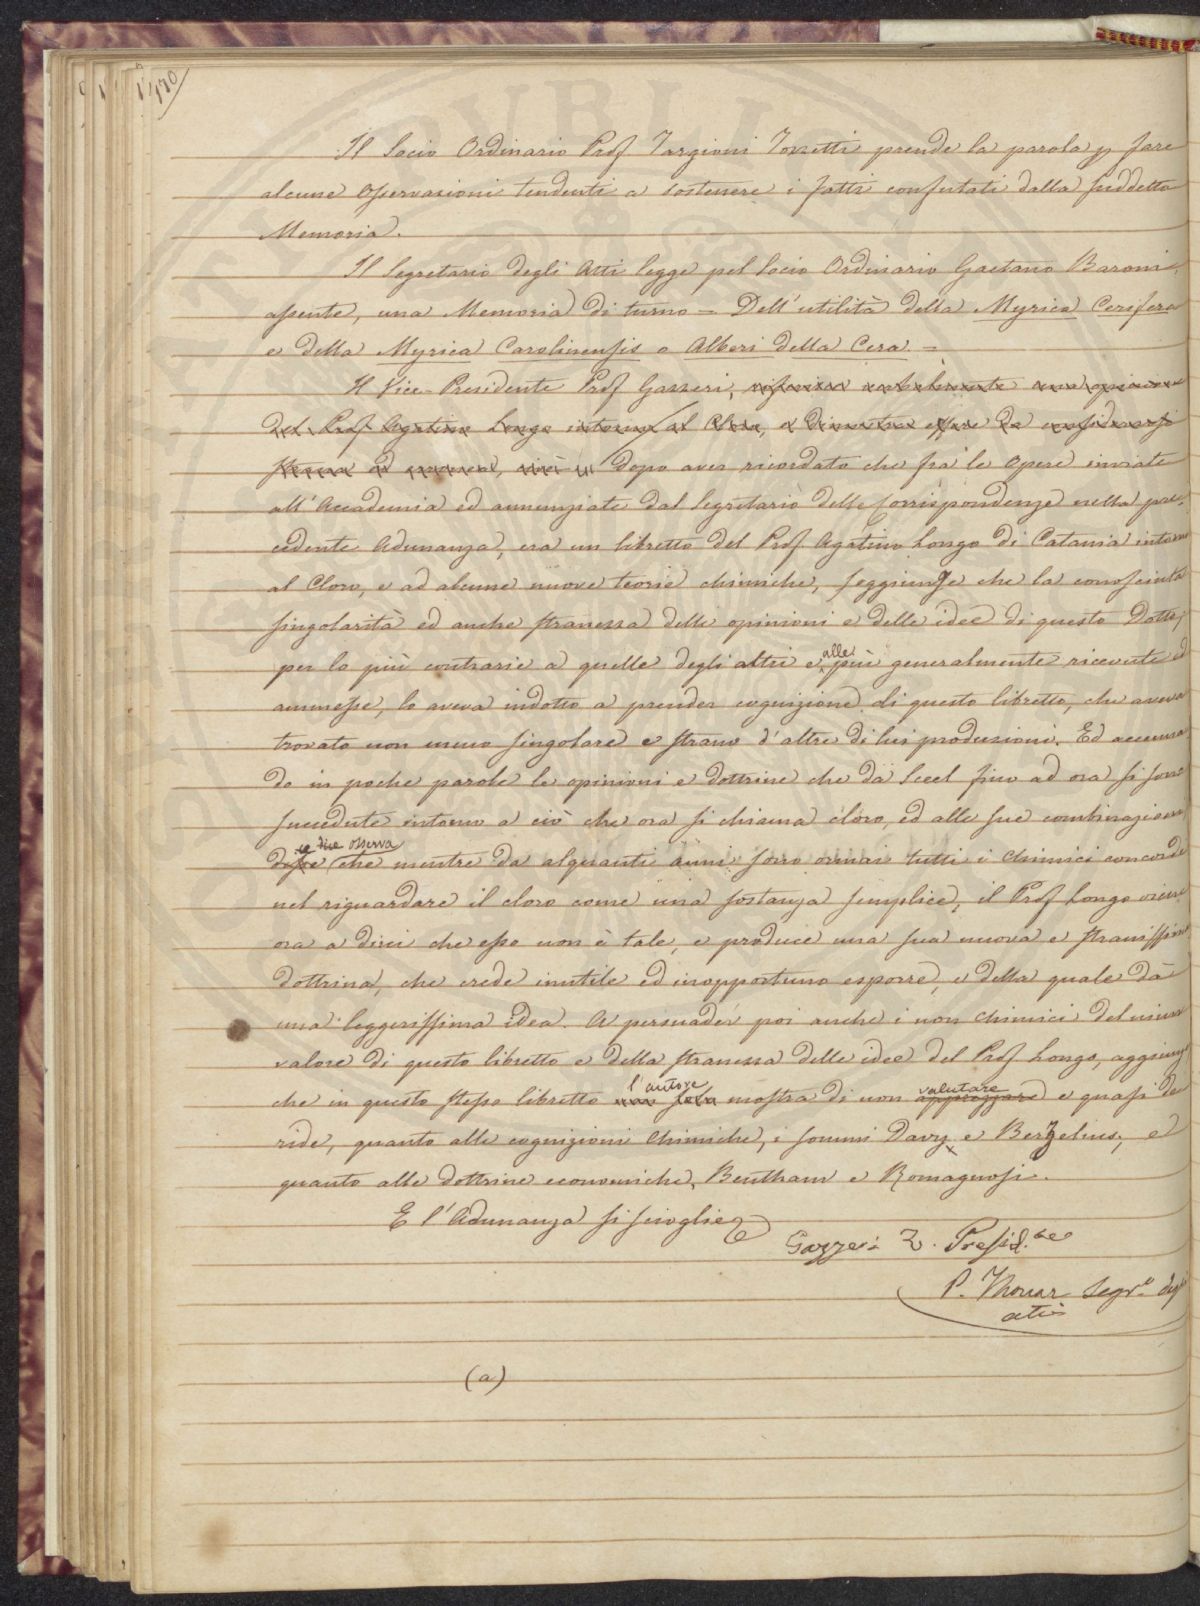 170
Il Socio Ordinario Prof Targioni Tozzetti prende la parola p fare
alcune osservazioni tendenti a sostenere i fatti confutati dalla suddetta
Memoria.
Il Segretario degli Atti legge pel Socio Ordinario Gaetano Baroni
assente, una Memoria di turno = Dell'utilità della Myrica Cerifera
e della Myrica Carolinensis o Alberi della Cera =
Il Vice-Presidente Prof Gazzeri,
del Prof Agatino Longo intorno al Cloro, e dimostra essere da considerarsi
dopo aver ricordato che fra le Opere inviate
all'Accademia ed annunziate dal Segretario delle Corrispondenze nella pre-
cedente Adunanza, era un libretto del Prof. Agatino Longo di Catania intorno
al Cloro, e ad alcune nuove teorie chimiche, soggiunge che la conosciuta
singolarità ed anche stranezza delle opinioni e delle idee di questo Dotto,
per lo più contrarie a quelle degli altri e alle più generalmente ricevute ed
ammesse, lo aveva indotto a prender cognizione di questo libretto, che aveva
trovato non meno singolare e strano d'altre di lui produzioni. Ed accennan
do in poche parole le opinioni e dottrine che da Sceel fino ad ora si sono
succedute intorno a ciò che ora si chiama cloro, ed alle sue combinazioni,
disse osserva che mentre da alquanti anni sono ormai tutti i Chimici concordi
nel riguardare il cloro come una sostanza semplice, il Prof Longo viene
ora a dirci che esso non è tale, e produce una sua nuova e stranissima
dottrina, che crede inutile ed inopportuno esporre, e della quale dà
una leggerissima idea. A persuader poi anche i non Chimici del niun
valore di questo libretto e della stranezza delle idee del Prof Longo, aggiunge
che in questo stesso libretto l'autore mostra di non apprezzare valutare e quasi de
ride, quanto alle cognizioni Chimiche, i sommi Davy e Berzelius, e
quanto alle dottrine economiche, Bentham e Romagnosi.
E l'Adunanza si scioglie
Gazzeri V. Presid.te
P. Thouar Segr.o degli
atti
(a)